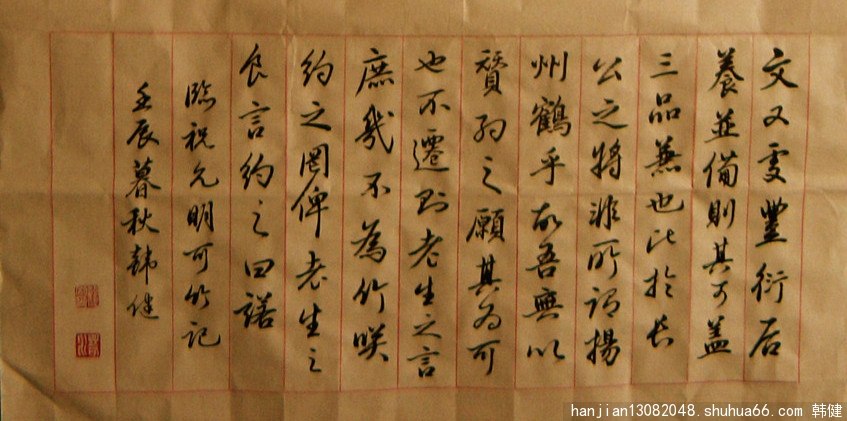 交又处豐衍居
養並備則其可盖
三品兼也比扵长
公之将非所謂揚
州鶴乎故吾無以
贅孙之願其为可
也不遷則老生之言
庶幾不為竹咲
約之罔俾老生之
食言約之曰諾
臨祝允明可竹记
壬辰暮秋韩健
hanjian13082048.shuhua66.com 韩健